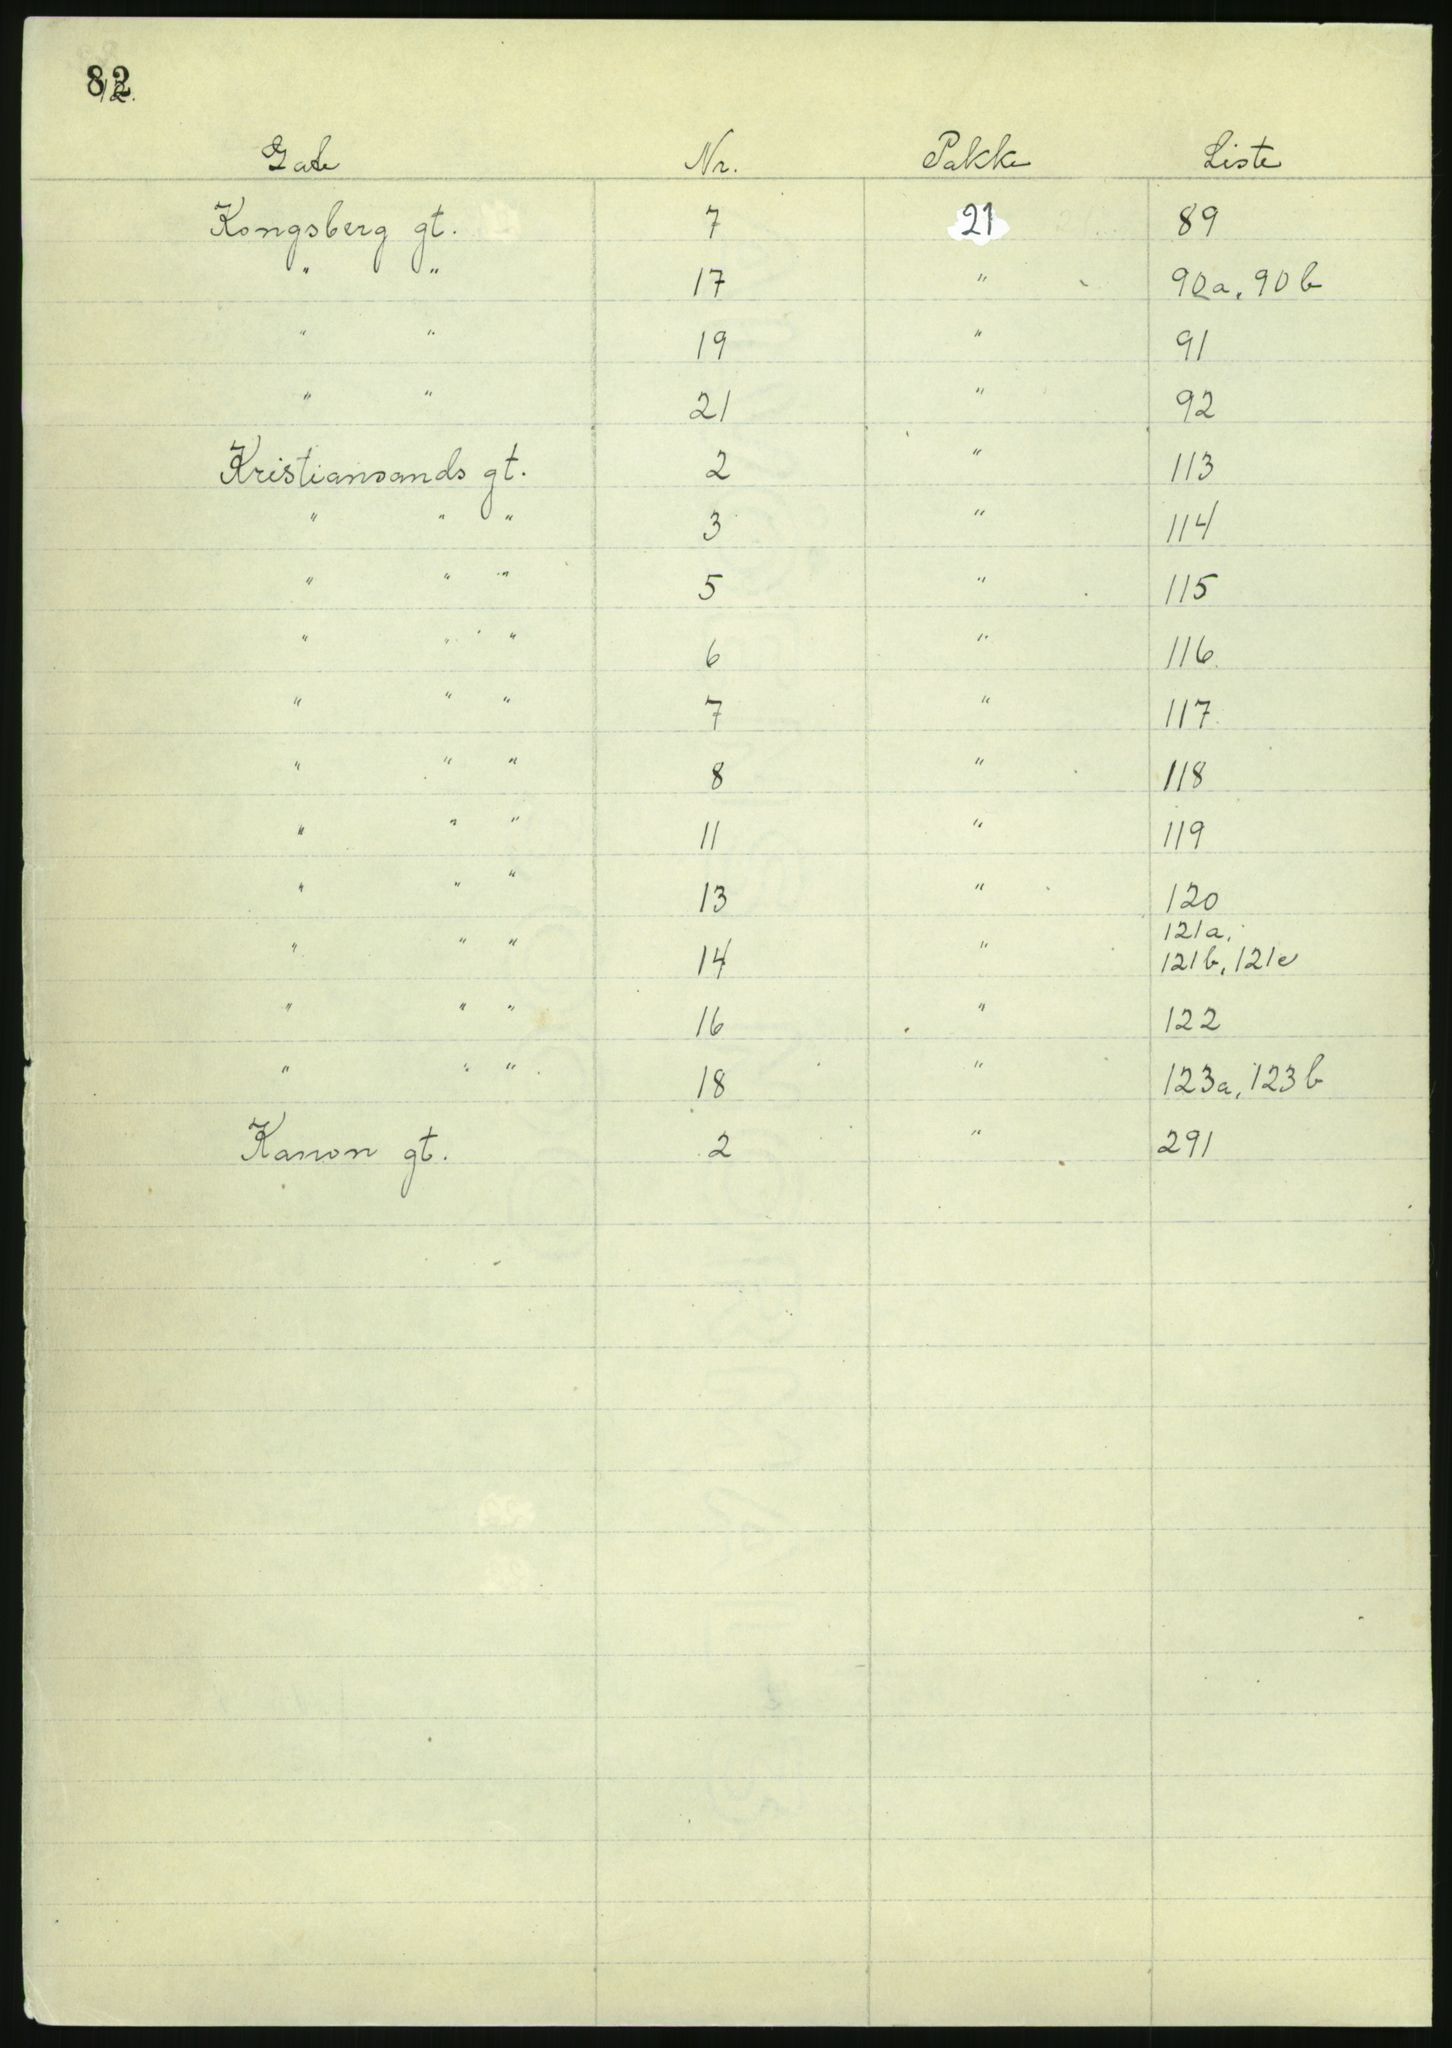 82
12.
Gate Nr. Pakke Liste
Kongsberg gt. 7 21 89
" " 17 " 90a, 90b
" " 19 " 91
" " 21 " 92
Kristiansands gt. 2 " 113
" " " 3 " 114
" " " 5 " 115
" " " 6 " 116
" " " 7 " 117
" " " 8 " 118
" " " 11 " 119
" " " 13 " 120
" " " 14 " 121a,
121b, 121c
" " " 16 " 122
" " " 18 " 123a, 123b
Kanon gt. 2 " 291